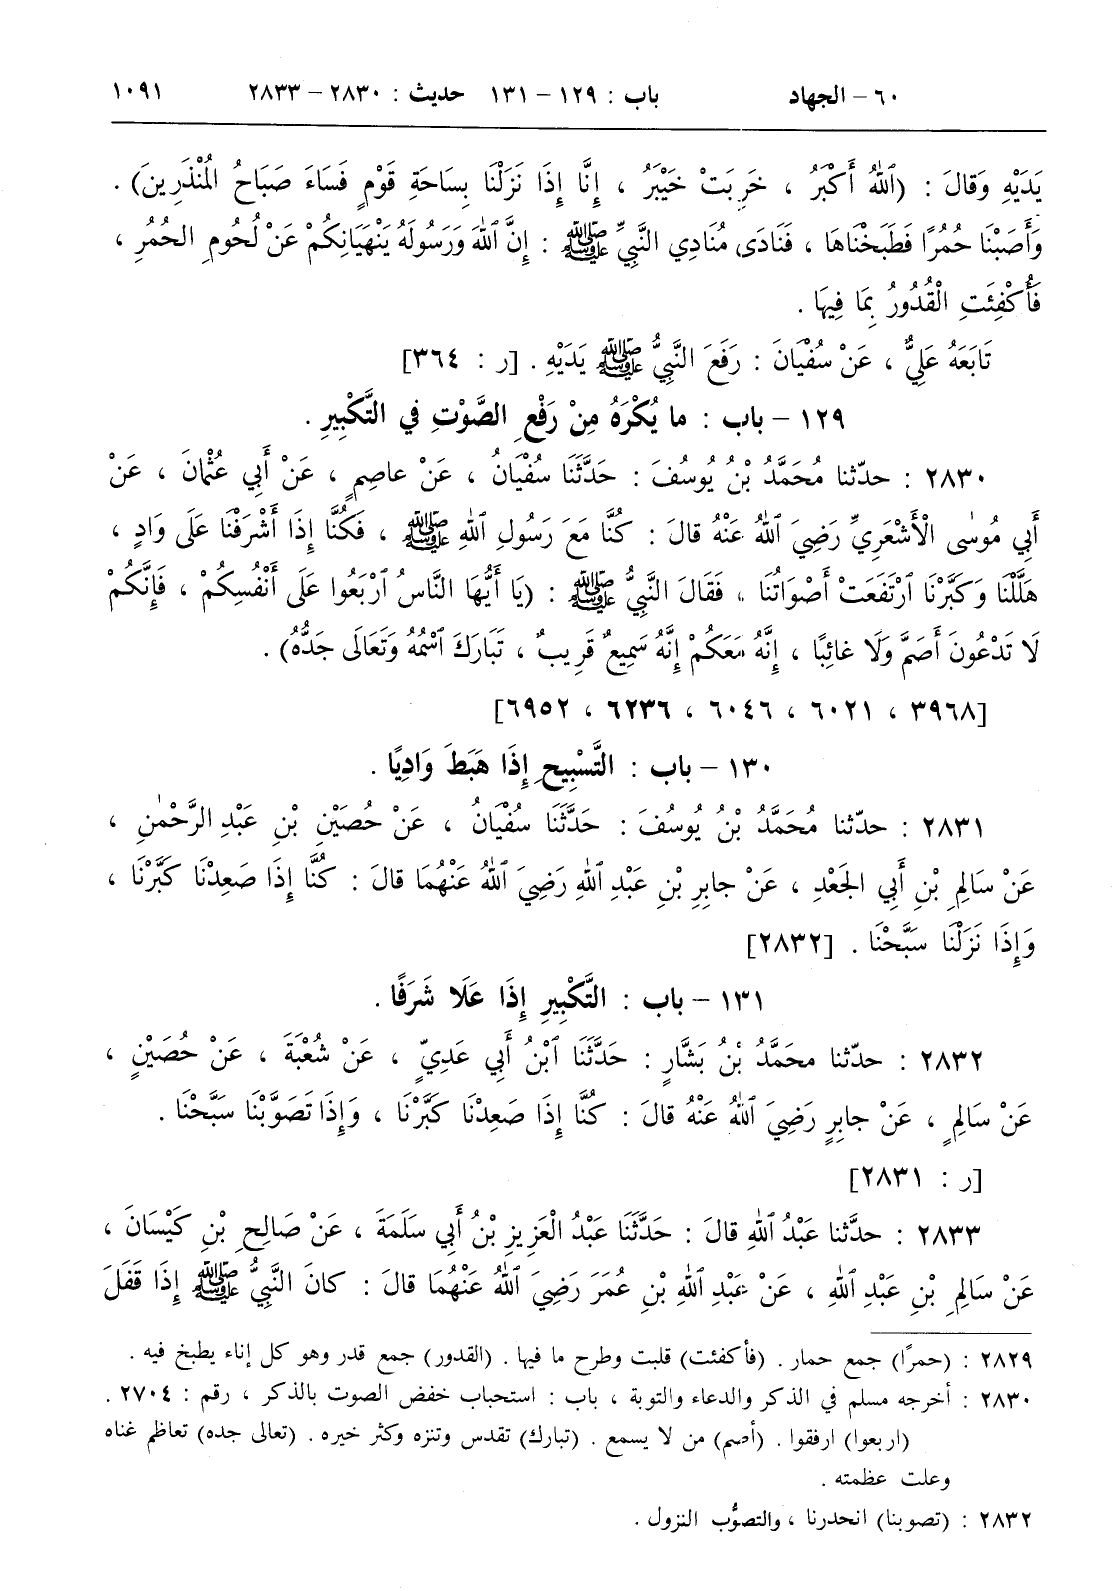 ٦٠ – الجهاد باب : ١٢٩ – ١٣١ حديث : ٢٨٣٠ – ٢٨٣٣ ١٠٩١
يَدَيْهِ وَقَالَ : (اَللّٰهُ أَكْبَرُ ، خَرِبَتْ خَيْبَرُ ، إِنَّا إِذَا نَزَلْنَا بِسَاحَةِ قَوْمٍ فَسَاءَ صَبَاحُ الْمُنْذَرِينَ) .
وَأَصَبْنَا حُمُرًا فَطَبَخْنَاهَا ، فَنَادَى مُنَادِي النَّبِيِّ ﷺ : إِنَّ اللّٰهَ وَرَسُولَهُ يَنْهَيَانِكُمْ عَنْ لُحُومِ الحُمُرِ ،
فَأُكْفِئَتِ الْقُدُورُ بِمَا فِيهَا .
تَابَعَهُ عَلِيٌّ ، عَنْ سُفْيَانَ : رَفَعَ النَّبِيُّ ﷺ يَدَيْهِ . [ر : ٣٦٤]
١٢٩ – باب : ما يُكْرَهُ مِنْ رَفْعِ الصَّوْتِ في التَّكْبِيرِ .
٢٨٣٠ : حدّثنا مُحَمَّدُ بْنُ يُوسُفَ : حَدَّثَنَا سُفْيَانُ ، عَنْ عاصِمٍ ، عَنْ أَبِي عُثْمَانَ ، عَنْ
أَبِي مُوسٰى الْأَشْعَرِيِّ رَضِيَ اللّٰهُ عَنْهُ قالَ : كُنَّا مَعَ رَسُولِ اللّٰهِ ﷺ ، فَكُنَّا إِذَا أَشْرَفْنَا عَلَى وَادٍ ،
هَلَّلْنَا وَكَبَّرْنَا اَرْتَفَعَتْ أَصْوَاتُنَا ، فَقَالَ النَّبِيُّ ﷺ : (يَا أَيُّهَا النَّاسُ اَرْبَعُوا عَلَى أَنْفُسِكُمْ ، فَإِنَّكُمْ
لَا تَدْعُونَ أَصَمَّ وَلَا غائِبًا ، إِنَّهُ مَعَكُمْ إِنَّهُ سَمِيعٌ قَرِيبٌ ، تَبَارَكَ اَسْمُهُ وَتَعَالَى جَدُّهُ) .
[٣٩٦٨ ، ٦٠٢١ ، ٦٠٤٦ ، ٦٢٣٦ ، ٦٩٥٢]
١٣٠ – باب : التَّسْبِيحِ إِذَا هَبَطَ وَادِيًا .
٢٨٣١ : حدّثنا مُحَمَّدُ بْنُ يُوسُفَ : حَدَّثَنَا سُفْيَانُ ، عَنْ حُصَيْنِ بْنِ عَبْدِ الرَّحْمٰنِ ،
عَنْ سَالِمِ بْنِ أَبِي الجَعْدِ ، عَنْ جابِرِ بْنِ عَبْدِ اللّٰهِ رَضِيَ اللّٰهُ عَنْهُمَا قالَ : كُنَّا إِذَا صَعِدْنَا كَبَّرْنَا ،
وَإِذَا نَزَلْنَا سَبَّحْنَا . [٢٨٣٢]
١٣١ – باب : التَّكْبِيرِ إِذَا عَلَا شَرَفًا .
٢٨٣٢ : حدّثنا محَمَّدُ بْنُ بَشَّارٍ : حَدَّثَنَا اَبْنُ أَبِي عَدِيٍّ ، عَنْ شُعْبَةَ ، عَنْ حُصَيْنٍ ،
عَنْ سَالِمٍ ، عَنْ جابِرٍ رَضِيَ اللّٰهُ عَنْهُ قالَ : كُنَّا إِذَا صَعِدْنَا كَبَّرْنَا ، وَإِذَا تَصَوَّبْنَا سَبَّحْنَا .
[ر : ٢٨٣١]
٢٨٣٣ : حدّثنا عَبْدُ اللّٰهِ قالَ : حَدَّثَنَا عَبْدُ الْعَزِيزِ بْنُ أَبِي سَلَمَةَ ، عَنْ صَالِحِ بْنِ كَيْسَانَ ،
عَنْ سَالِمِ بْنِ عَبْدِ اللّٰهِ ، عَنْ عَبْدِ اللّٰهِ بْنِ عُمَرَ رَضِيَ اللّٰهُ عَنْهُمَا قالَ : كانَ النَّبِيُّ ﷺ إِذَا قَفَلَ
٢٨٢٩ : (حمرًا) جمع حمار . (فأكفئت) قلبت وطرح ما فيها . (القدور) جمع قدر وهو كل إناء يطبخ فيه .
٢٨٣٠ : أخرجه مسلم في الذكر والدعاء والتوبة ، باب : استحباب خفض الصوت بالذكر ، رقم : ٢٧٠٤ .
(اربعوا) ارفقوا . (أصم) من لا يسمع . (تبارك) تقدس وتنزه وكثر خيره . (تعالى جده) تعاظم غناه
وعلت عظمته .
٢٨٣٢ : (تصوبنا) انحدرنا ، والتصوُّب النزول .